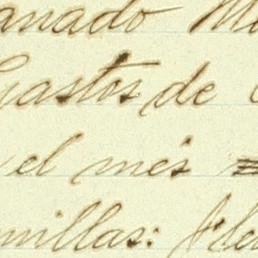 anado
Gastos de
el més
millas: